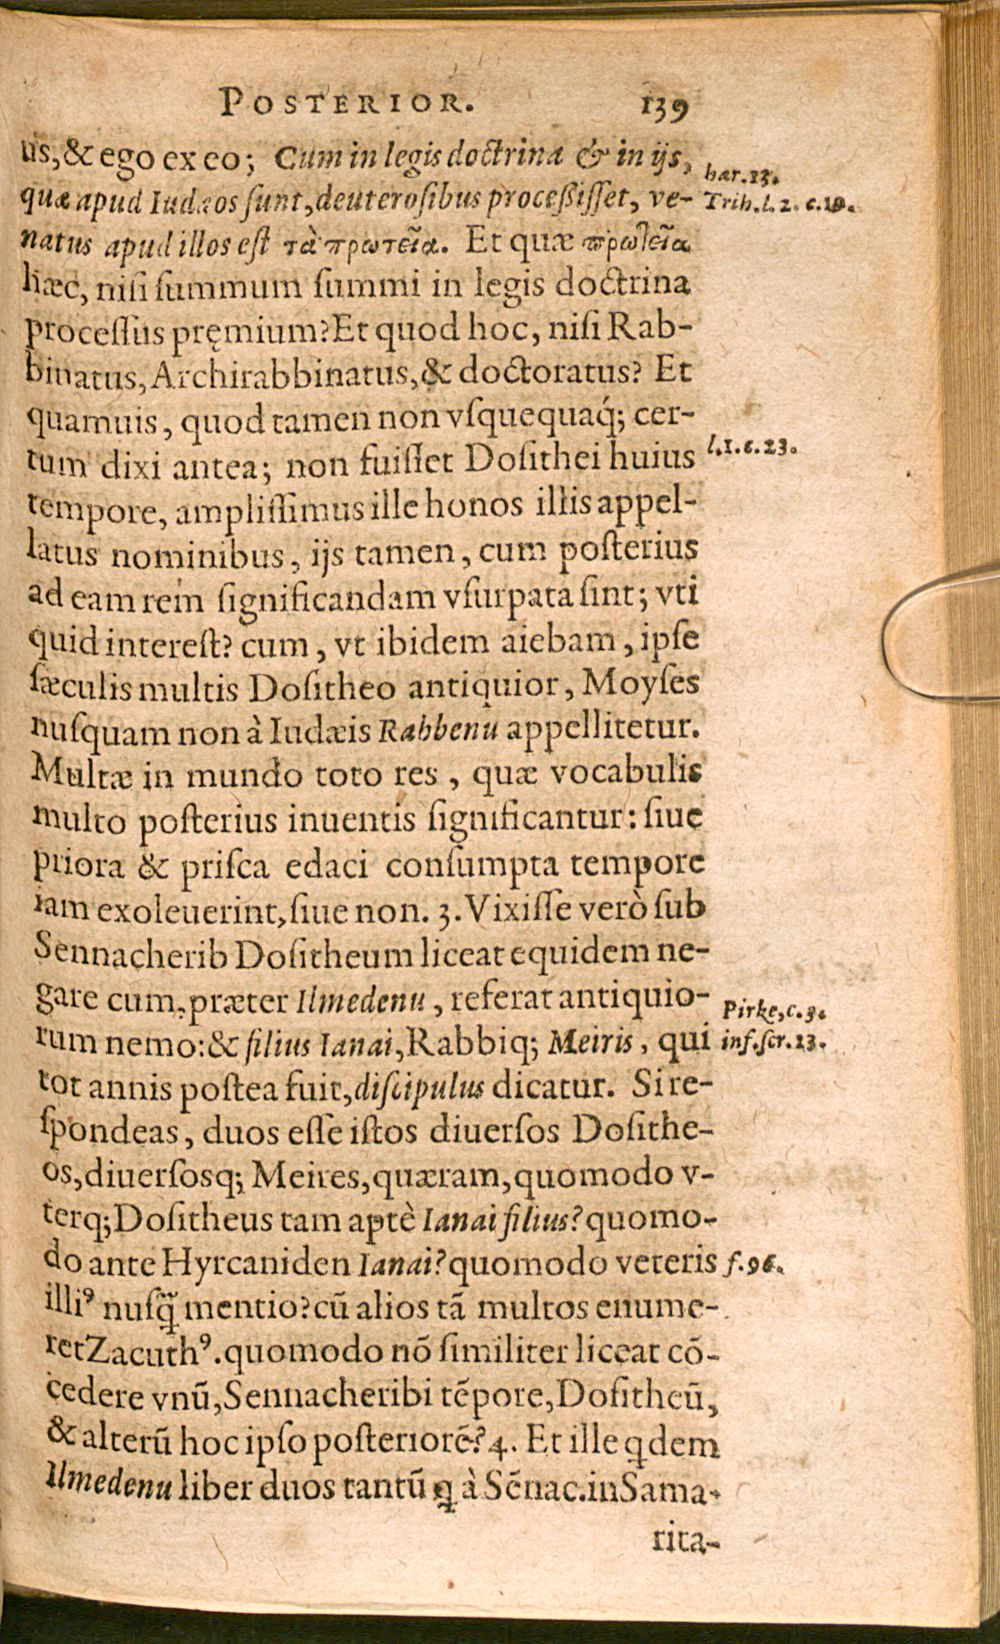 POSTERIOR. 139
us, & ego ex eo; Cum in legis doctrina & in ijs,
hær. 13.
quæ apud Iudæos sunt, deuterosibus processisset, ve-
Trih. l. 2. c. 10.
natus apud illos est τὰ πρωτεῖα. Et quæ πρωτεῖα
hæc, nisi summum summi in legis doctrina
processus pręmium? Et quod hoc, nisi Rab-
binatus, Archirabbinatus, & doctoratus? Et
quamuis, quod tamen non vsquequaq́; cer-
tum dixi antea; non fuisset Dosithei huius
l. 1. c. 23.
tempore, amplissimus ille honos illis appel-
latus nominibus, ijs tamen, cum posterius
ad eam rem significandam vsurpata sint; vti
quid interest? cum, vt ibidem aiebam, ipse
sæculis multis Dositheo antiquior, Moyses
nusquam non à Iudæis Rabbenu appellitetur.
Multæ in mundo toto res, quæ vocabulis
multo posterius inuentis significantur: siue
priora & prisca edaci consumpta tempore
iam exoleuerint, siue non. 3. Vixisse verò sub
Sennacherib Dositheum liceat equidem ne-
gare cum, præter Ilmedenu, referat antiquio-
Pirke, c. 9.
rum nemo: & filius Ianai, Rabbiq; Meiris, qui
inf. scr. 13.
tot annis postea fuit, discipulus dicatur. Si re-
spondeas, duos esse istos diuersos Dosithe-
os, diuersosq; Meires, quæram, quomodo v-
terq; Dositheus tam aptè Ianai filius? quomo-
do ante Hyrcaniden Ianai? quomodo veteris
f. 96.
illiꝰ nusq̃ mentio? cū alios tā multos enume-
ret Zacuthꝰ. quomodo nō similiter liceat cō-
cedere vnū, Sennacheribi tēpore, Dositheū,
& alterū hoc ipso posteriorē? 4. Et ille qdem
Ilmedenu liber duos tantū à Sēnac. in Sama-
rita-